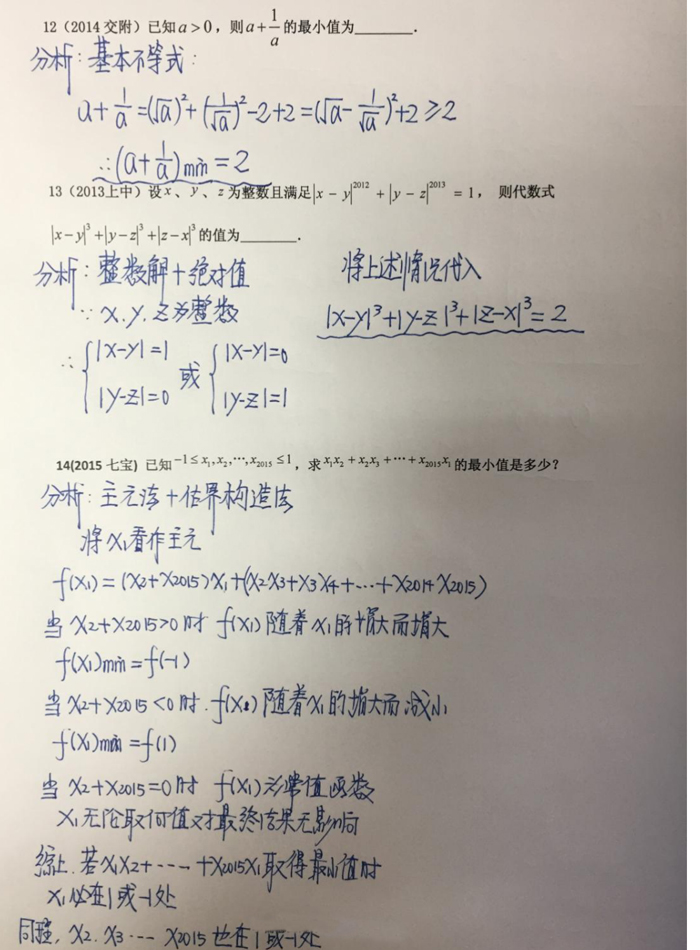 12（2014 交附）已知 a > 0，则 a + 1/a 的最小值为________.
分析：基本不等式：
a + 1/a = (√a)² + (1/√a)² - 2 + 2 = (√a - 1/√a)² + 2 ≥ 2
∴ (a + 1/a)min = 2
13（2013上中）设 x、y、z 为整数且满足 |x - y|^2012 + |y - z|^2013 = 1， 则代数式
|x - y|³ + |y - z|³ + |z - x|³ 的值为________.
分析：整数解+绝对值
∵ x.y.z为整数
∴ { |x-y|=1 或 { |x-y|=0
|y-z|=0 |y-z|=1
将上述情况代入
|x-y|³+|y-z|³+|z-x|³=2
14(2015 七宝) 已知 -1 ≤ x₁, x₂, ⋯, x₂₀₁₅ ≤ 1，求 x₁x₂ + x₂x₃ + ⋯ + x₂₀₁₅x₁ 的最小值是多少？
分析：主元法+估界构造法
将x₁看作主元
f(x₁)=(x₂+x₂₀₁₅)x₁+(x₂x₃+x₃x₄+⋯+x₂₀₁₄x₂₀₁₅)
当 x₂+x₂₀₁₅>0时 f(x₁)随着x₁的增大而增大
f(x₁)min=f(-1)
当 x₂+x₂₀₁₅<0时.f(x₁)随着x₁的增大而减小
f(x₁)min=f(1)
当 x₂+x₂₀₁₅=0时 f(x₁)为常值函数
x₁无论取何值对最终结果无影响
综上.若x₁x₂+----+x₂₀₁₅x₁取得最小值时
x₁必在1或-1处
同理，x₂.x₃--- x₂₀₁₅也在1或-1处